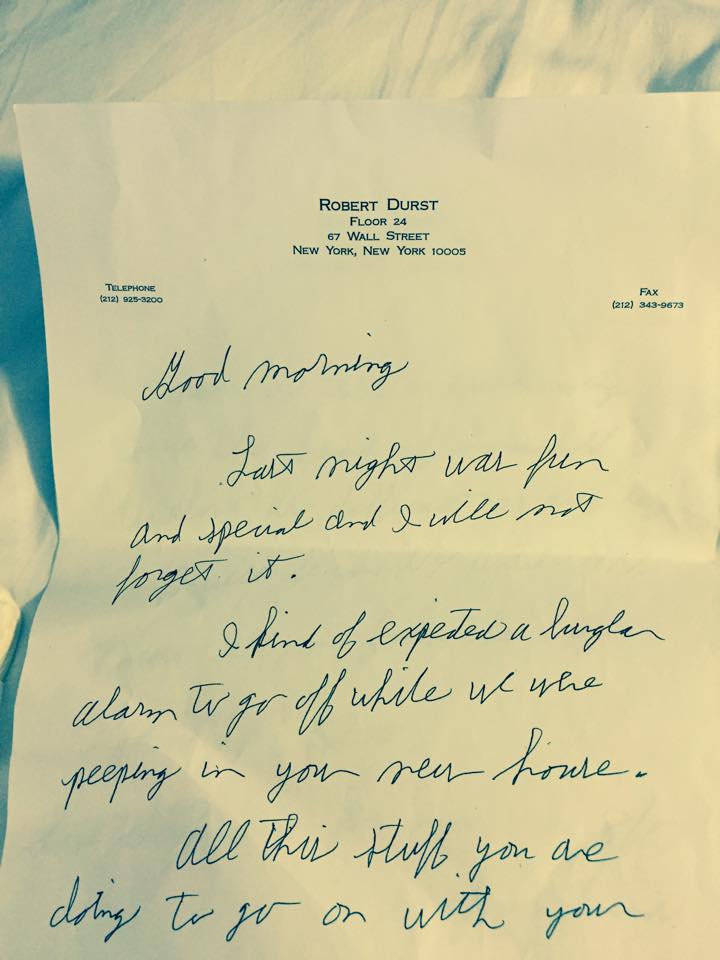 ROBERT DURST
FLOOR 24
67 WALL STREET
NEW YORK, NEW YORK 10005
TELEPHONE
(212) 925-3200
FAX
(212) 343-9673
Good morning
Last night was fun
and special and I will not
forget it.
I kind of expected a burglar
alarm to go off while we were
peeping in your new house.
All this stuff you are
doing to go on with your